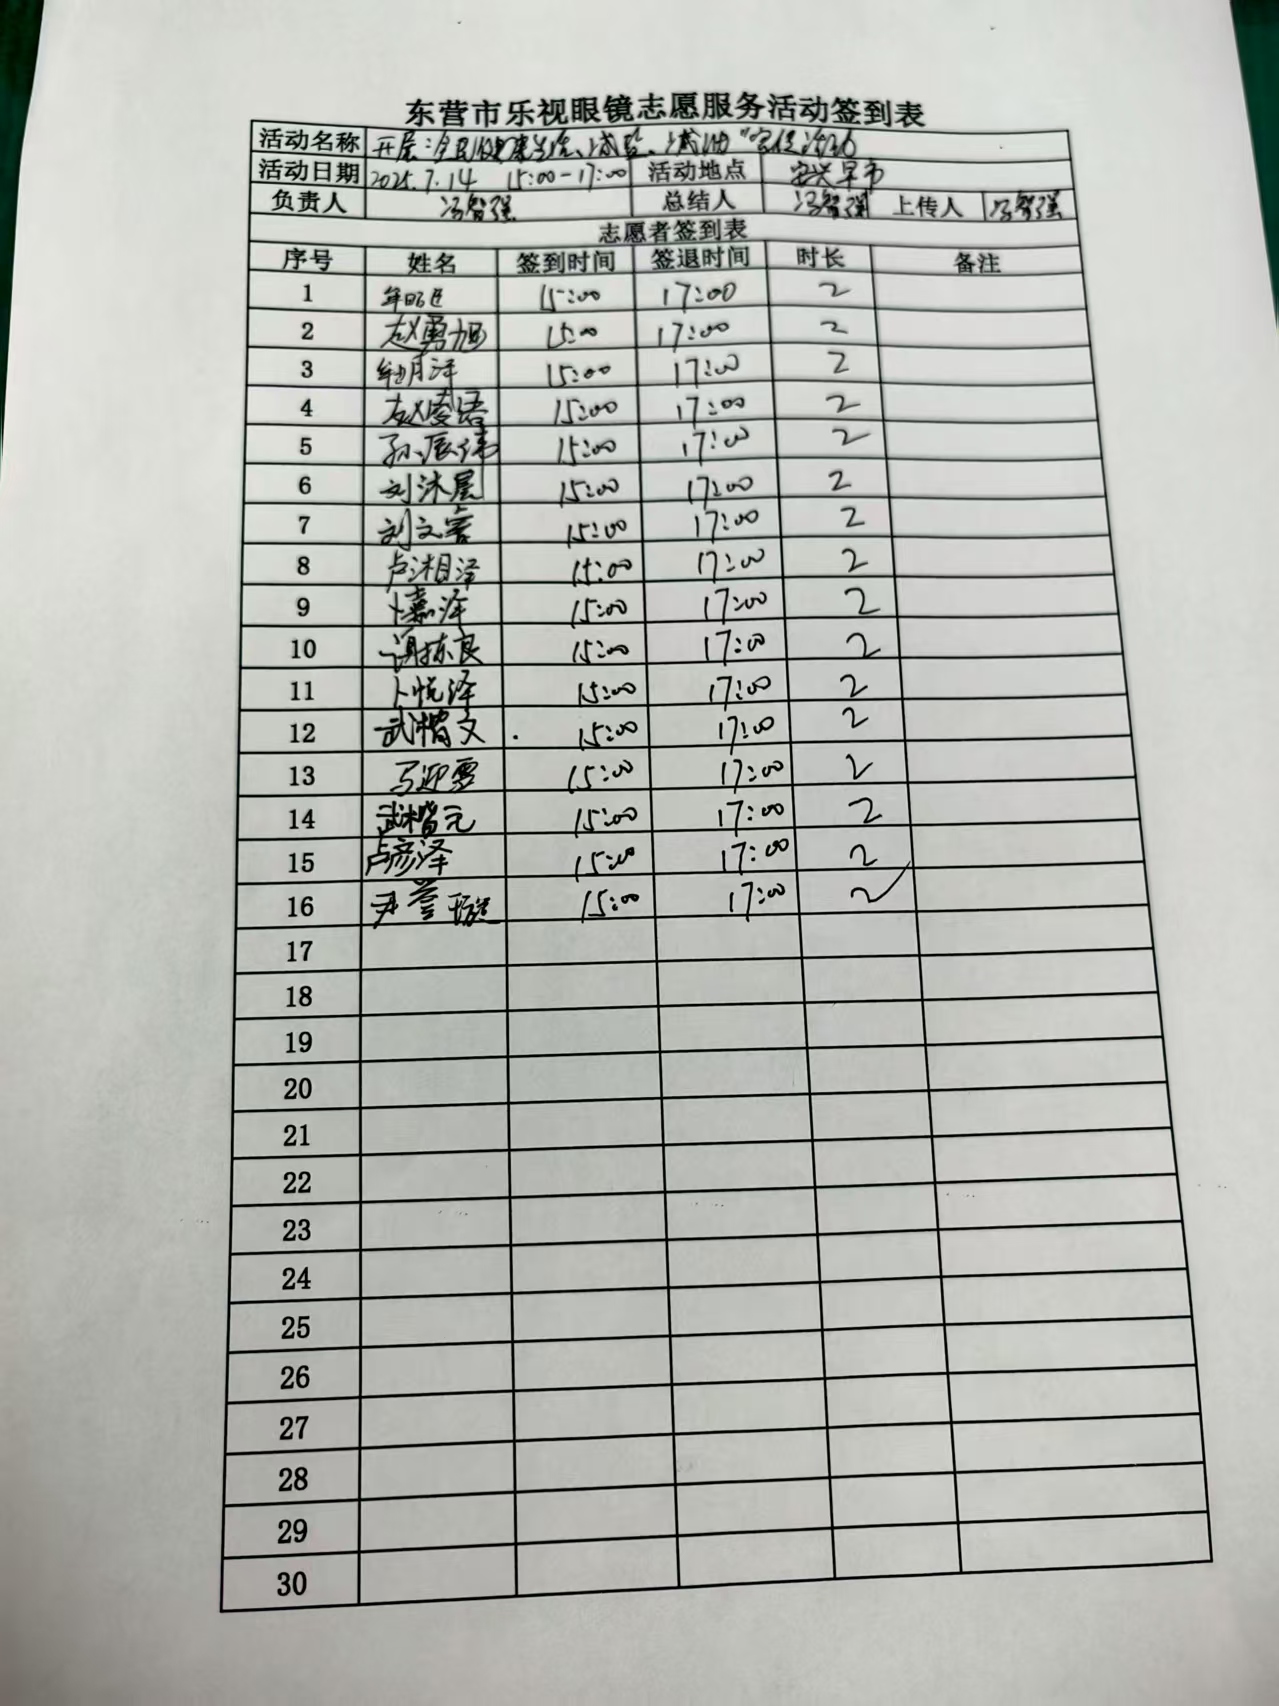 东营市乐视眼镜志愿服务活动签到表
活动名称 开展:全民健康生活、减盐、减油"宣传活动
活动日期 2025.7.14 15:00-17:00 活动地点 安兴早市
负责人 冯智强 总结人 冯智强 上传人 冯智强
志愿者签到表
序号 姓名 签到时间 签退时间 时长 备注
1 15:00 17:00 2
2 赵勇旭 15:00 17:00 2
3 15:00 17:00 2
4 赵凌语 15:00 17:00 2
5 孙辰伟 15:00 17:00 2
6 刘沐展 15:00 17:00 2
7 刘文睿 15:00 17:00 2
8 卢湘泽 15:00 17:00 2
9 卜嘉泽 15:00 17:00 2
10 谢栋良 15:00 17:00 2
11 卜悦泽 15:00 17:00 2
12 武楷文 15:00 17:00 2
13 马迎雪 15:00 17:00 2
14 武楷元 15:00 17:00 2
15 卢彦泽 15:00 17:00 2
16 15:00 17:00 2
17
18
19
20
21
22
23
24
25
26
27
28
29
30